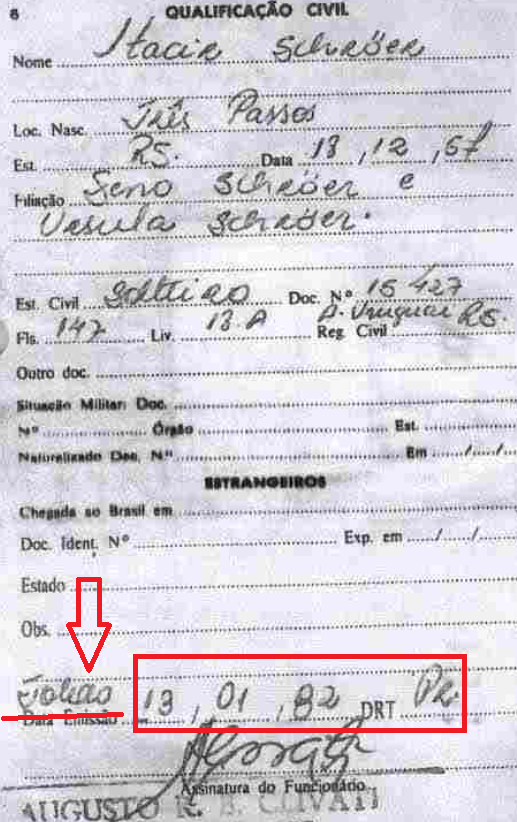 6 QUALIFICAÇÃO CIVIL
Nome Itacir Schröer
Loc. Nasc. Três Passos
Est. RS. Data 13, 12, 57
Filiação Seno Schröer e
Ursula Schröer.
Est. Civil Solteiro Doc. Nº 15427
Fls. 147 Liv. 13.A Reg. Civil A. Uruguai RS.
Outro doc.
Situação Militar: Doc.
Nº Órgão Est.
Naturalizado Doc. Nº Em / /
ESTRANGEIROS
Chegada ao Brasil em
Doc. Ident. Nº Exp. em / /
Estado
Obs.
Toledo
Data Emissão 13, 01, 82 DRT Pr.
Assinatura do Funcionário
AUGUSTO R. B.